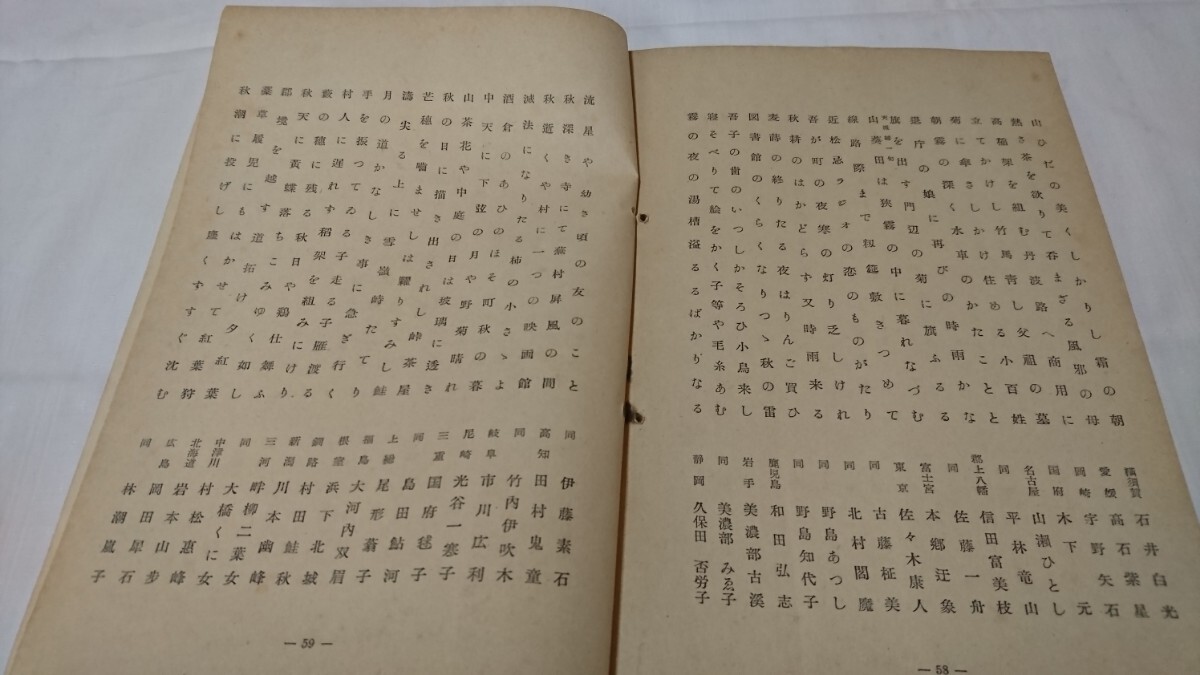 山ひだの美くしかりし霜の朝 横須賀 石井白光
熱き茶を欲りて呑まざる風邪の母 愛媛 高石紫星
高稲架を組む丹波路へ商用に 岡崎 宇野矢石
立てかけし竹馬青し父祖の墓 国府 木下元
菊に傘さしかけ住める小百姓 名古屋 山瀬ひとし
朝霧の深く水車のかたことと 同 平林竜山
退庁の娘に再びの時雨かな 郡上八幡 信田富美枝
旗を出す門辺の菊に旗ふるる 同 佐藤一舟
山葵田は狭霧の中に暮れなづむ 富士宮 本郷迂象
線路際まで籾筵敷きつめて 東京 佐々木康人
近松忌ラジオの恋のものがたり 同 古藤柾美
吾が町の夜寒の灯り乏しけれ 同 北村閻魔
秋耕のはかどらず又時雨来る 同 野島あつし
麦蒔の終りたる夜はりんご買ひ 同 野島知代子
図書館のくらくなりつゝ秋の雷 鹿児島 和田弘志
吾子の歯のいつしかそろひ小鳥来し 岩手 美濃部古溪
寝そべりて絵をかく子等や毛糸あむ 同 美濃部みゑ子
霧の夜の湯槽溢るるばかりなる 静岡 久保田杏労子
— 58 —
流星や幼き頃の友のこと 同 伊藤素石
秋深き寺にて蕪村屏風の間 高知 田村鬼童
秋逝くや村に一つの映画館 同 竹内伊吹木
滅法になりたる柿の小さゝよ 岐阜 市川広利
酒倉のあひのほそ町秋の暮 尾崎 光谷一寒子
中天に下弦の月や野菊晴れ 三重 国府毬子
山茶花や中庭の日は玻璃に透き 同 島田鮎河
秋の日に描き出されし峠茶屋 上總 尾形蒼子
芒穂を噛ませし 耀りすみし鮭 福島 大河内双眉
濤尖る上に雪嶺峙だてり 根室 浜下北城
月の道かなしき事に急ぎ行く 釧路 村田鮭秋
手を振つてゐる子走る子雁渡る 新潟 川本幽峰
村人に遅れて稲架を組みにけり 三河 畔柳二葉女
藪の穂に残る秋日や鶏仕舞ふ 同 大橋くに女
秋天に黄蝶落ちこみゆく如し 中津川 村松惠峰
郡境を越す道拓けて夕紅葉 北海道 岩本山歩
藁草履児にもはかせて紅葉狩 広島 岡田犀石
秋潮に投げし塵くずすぐ沈む 同 林潮嵐子
— 59 —